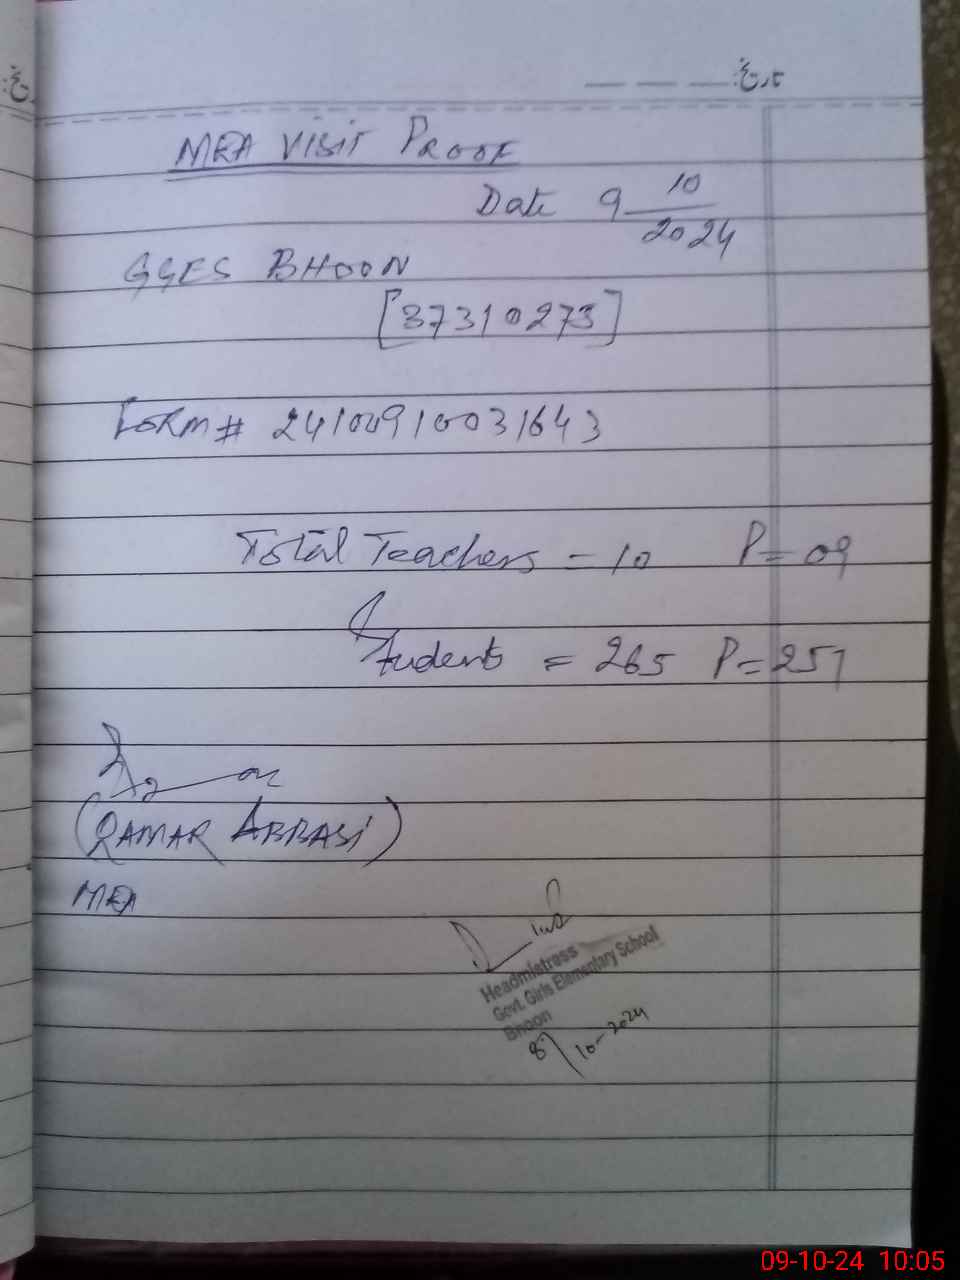 تاریخ:
MEA VISIT PROOF
Date 9 10/2024
GGES BHOON
[37310273]
FORM# 24100910031643
Total Teachers = 10 P= 09
Students = 265 P= 251
(QAMAR ABBASI)
MEA
Headmistress
Govt. Girls Elementary School
Bhoon
10-2024
09-10-24 10:05